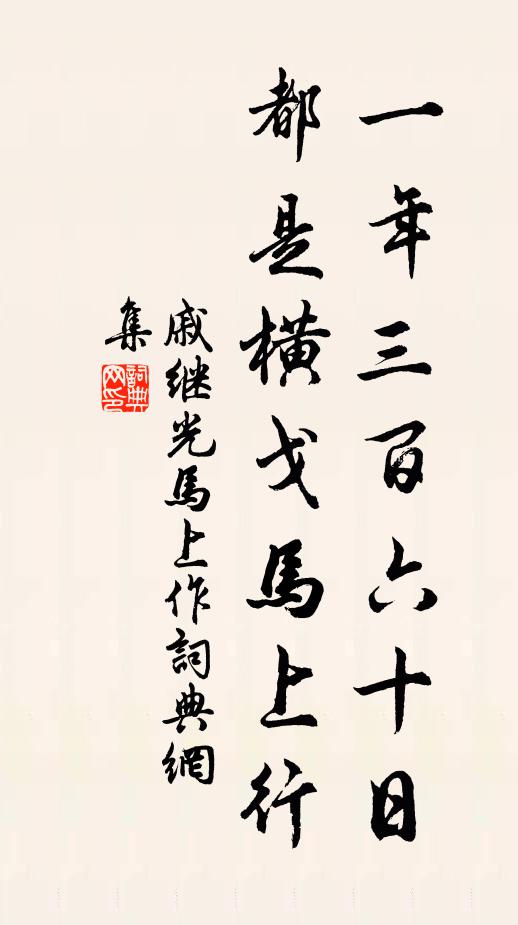 一年三百六十日
都是橫戈馬上行
戚继光馬上作詞典網
集
詞典
网印